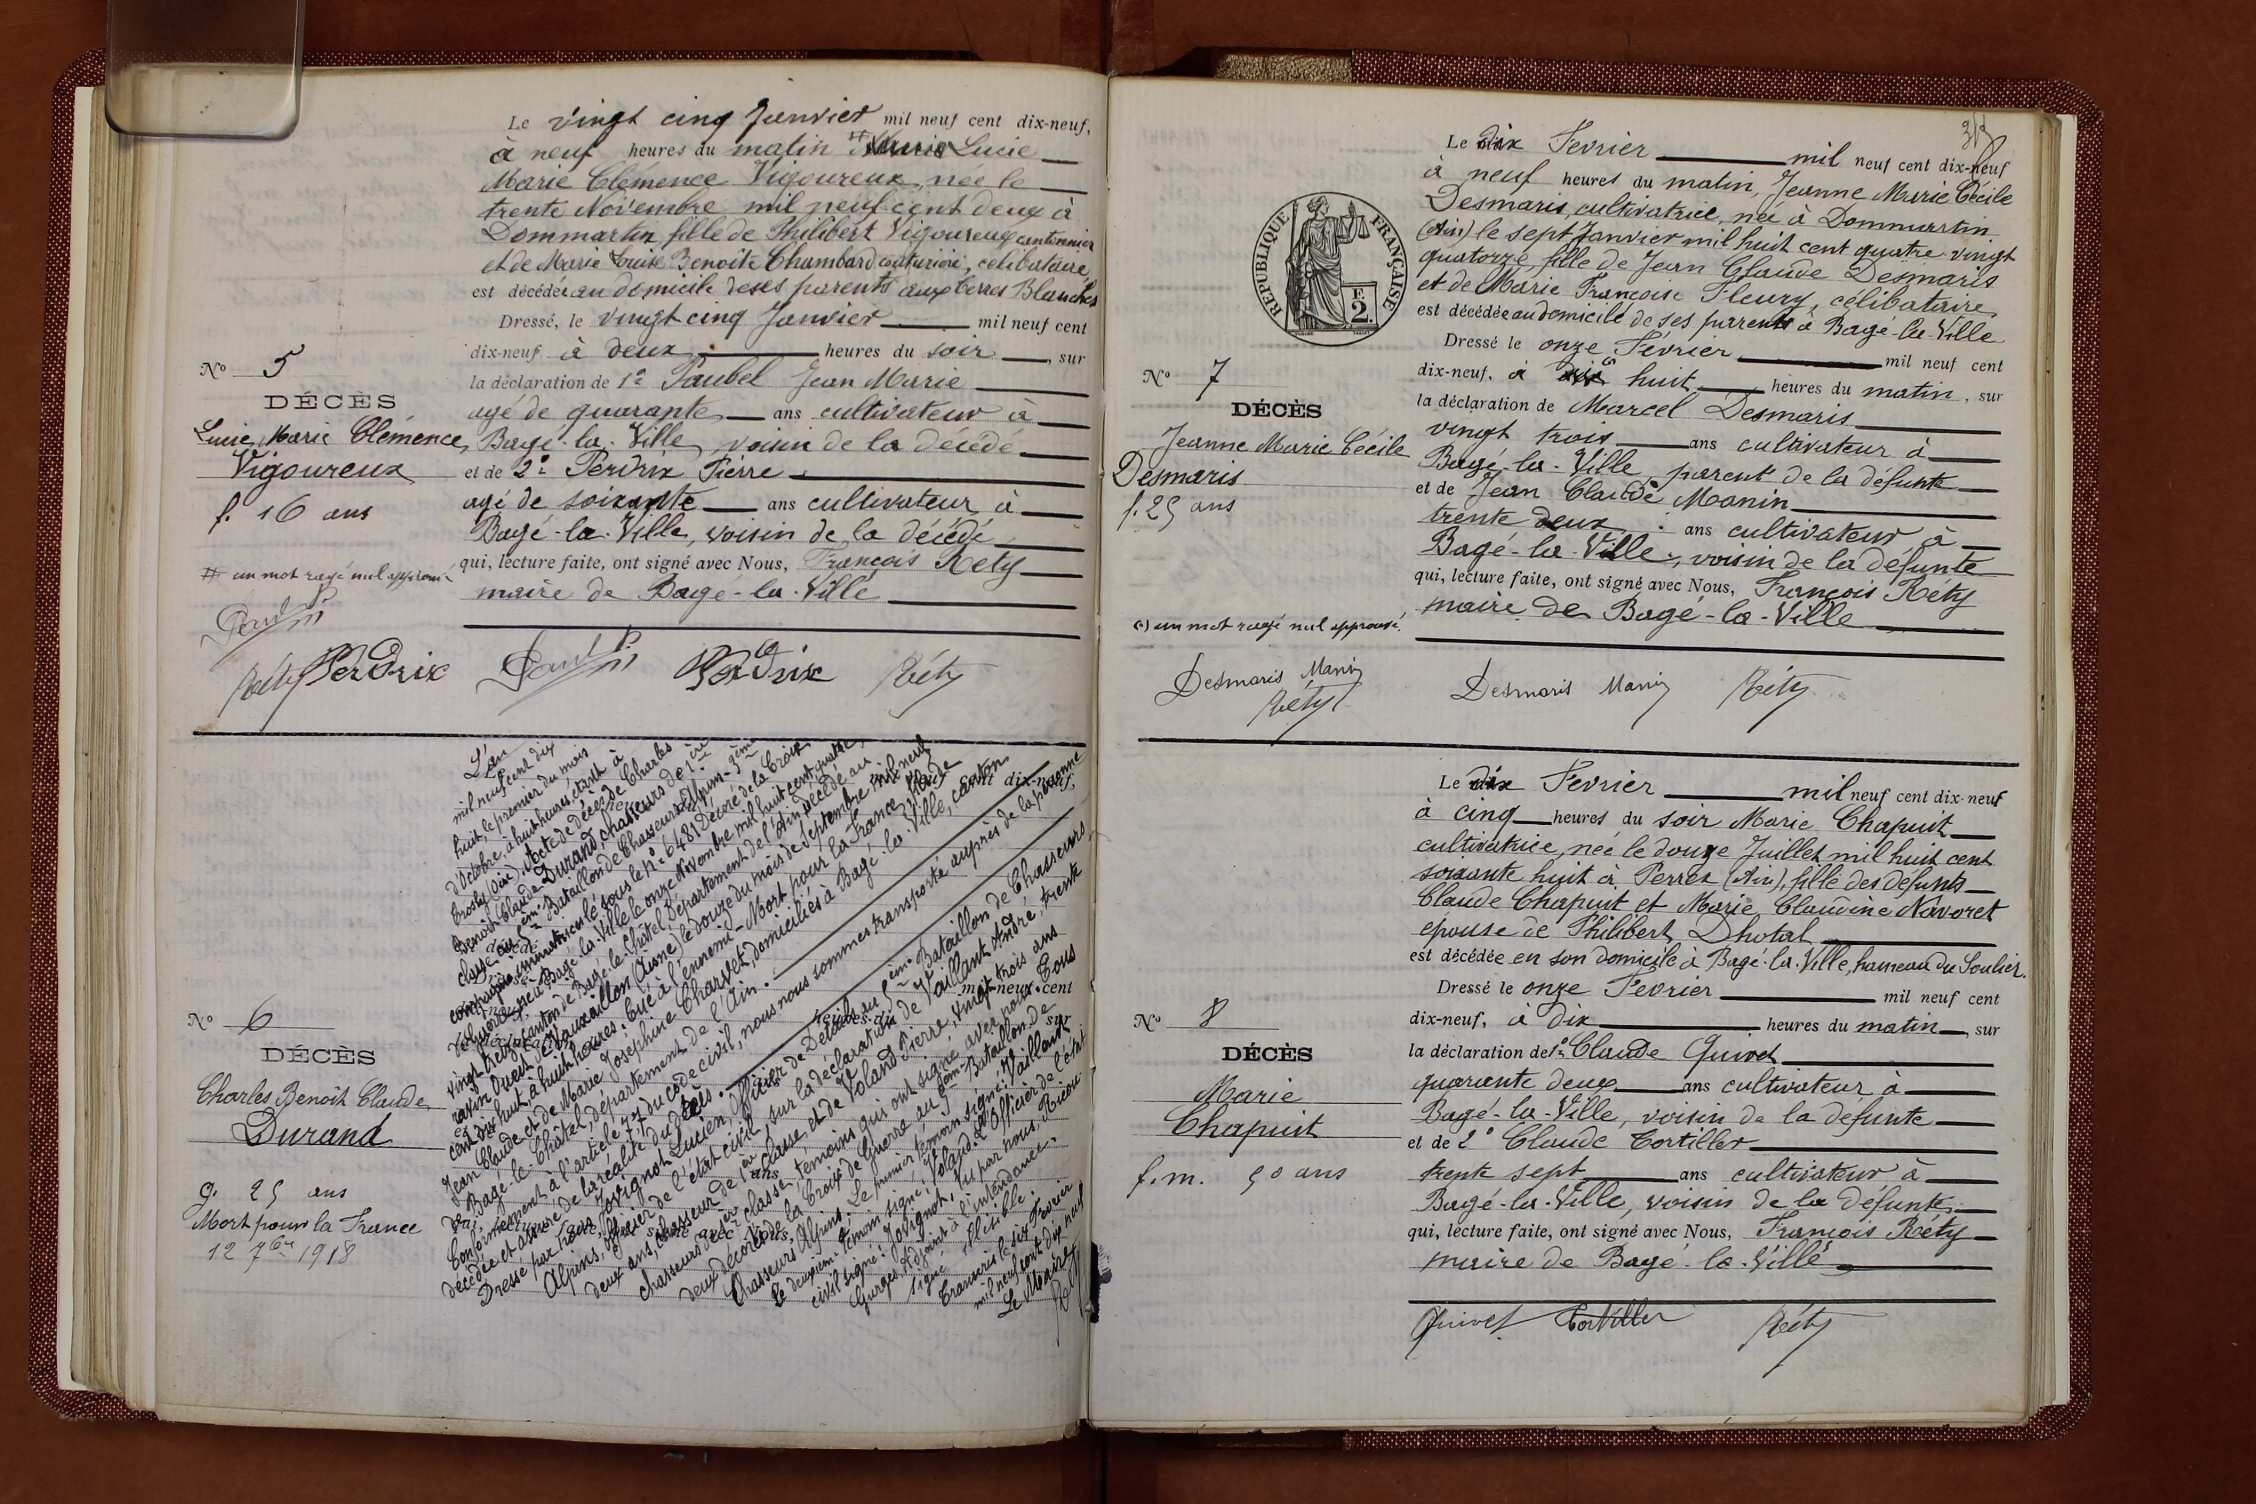 Le vingt cinq Janvier mil neuf cent dix-neuf,
à neuf heures du matin # Marie Lucie
Marie Clémence Vigoureux, née le
trente Novembre mil neuf cent deux à
Dommartin fille de Philibert Vigoureux cantonnier
et de Marie Louise Benoite Chambard couturière, célibataire
est décédée au domicile de ses parents aux terres Blanches
Dressé, le vingt cinq Janvier mil neuf cent
dix-neuf à deux heures du soir, sur
la déclaration de 1º Paubel Jean Marie
agé de quarante ans cultivateur à
Bagé-la-Ville, voisin de la décédé
et de 2º Perdrix Pierre
agé de soixante ans cultivateur à
Bagé-la-Ville, voisin de la décédé
qui, lecture faite, ont signé avec Nous, François Réty
maire de Bagé-la-Ville
Nº 5
DÉCÈS
Lucie Marie Clémence
Vigoureux
f. 16 ans
# un mot rayé nul approuvé
Réty Perdrix Perdrix Réty
L'an
mil neuf cent dix
huit, le premier du mois
d'Octobre, à huit heures, étant à
Crouy (Oise). Acte de décès de Charles
Benoit Claude Durand, chasseurs de 1ère
classe au 5ème Bataillon de Chasseurs Alpins - 3ème
compagnie immatriculé sous le Nº 6481 Décoré de la Croix
de guerre, né à Bagé-la-Ville le onze Novembre mil huit cent quatre
vingt treize canton de Bagé-le-Châtel, Département de l'Ain, décédé au
ravin Ouest de Vauxaillon (Aisne) le douze du mois de Septembre mil neuf
cent dix huit, à huit heures. Tué à l'ennemi - Mort pour la France, fils de
Jean Claude et de Marie Joséphine Charvet, domiciliés à Bagé-la-Ville, canton
Bagé-le-Châtel, département de l'Ain.
Conformément à l'article 77 du code civil, nous nous sommes transporté auprès de la personne
décédée et assuré de la réalité du décès.
Dressé par nous Jovignot Lucien, Officier de Détails au 5ème Bataillon de Chasseurs
Alpins, officier de l'état civil, sur la déclaration de Vaillant André, trente
deux ans, chasseur de 1ère classe, et de Voland Pierre, vingt trois ans
chasseurs de 1ère classe, témoins qui ont signé avec nous. Tous
deux décorés de la Croix de Guerre au 5ème Bataillon de
Chasseurs Alpins. Le premier témoin signé: Vaillant
Le deuxième témoin signé: Voland. L'Officier de l'état
civil signé: Jovignot. Vu par nous Ricou
Adjoint à l'intendance.
signé illisible.
Transcrit le six Février
mil neuf cent dix neuf
Le Maire
Réty
Nº 6
DÉCÈS
Charles Benoit Claude
Durand
g. 25 ans
Mort pour la France
12 7bre 1918
Le dix Février mil neuf cent dix-neuf
à neuf heures du matin, Jeanne Marie Cécile
Desmaris, cultivatrice, née à Dommartin
(Ain) le sept Janvier mil huit cent quatre vingt
quatorze fille de Jean Claude Desmaris
et de Marie Françoise Fleury, célibataire
est décédée au domicile de ses parents à Bagé-la-Ville
Dressé le onze Février mil neuf cent
dix-neuf, à huit heures du matin, sur
la déclaration de Marcel Desmaris
vingt trois ans cultivateur à
Bagé-la-Ville, parent de la défunte
et de Jean Claude Manin
trente deux ans cultivateur à
Bagé-la-Ville, voisin de la défunte
qui, lecture faite, ont signé avec Nous, François Réty
maire de Bagé-la-Ville
RÉPUBLIQUE FRANÇAISE
F.
2.
Nº 7
DÉCÈS
Jeanne Marie Cécile
Desmaris
f. 25 ans
(1) un mot rayé nul approuvé.
Desmaris Manin Réty Desmaris Manin Réty
Le dix Février mil neuf cent dix-neuf
à cinq heures du soir Marie Chapuit
cultivatrice, née le douze Juillet mil huit cent
soixante huit à Perrex (Ain), fille des défunts
Claude Chapuit et Marie Claudine Navoret
épouse de Philibert Dhotal
est décédée en son domicile à Bagé-la-Ville, hameau du Soulier.
Dressé le onze Février mil neuf cent
dix-neuf, à dix heures du matin, sur
la déclaration de 1º Claude Quivet
quarante deux ans cultivateur à
Bagé-la-Ville, voisin de la défunte
et de 2º Claude Tortiller
trente sept ans cultivateur à
Bagé-la-Ville, voisin de la défunte
qui, lecture faite, ont signé avec Nous, François Réty
maire de Bagé-la-Ville
Nº 8
DÉCÈS
Marie
Chapuit
f. m. 50 ans
Quivet Tortiller Réty